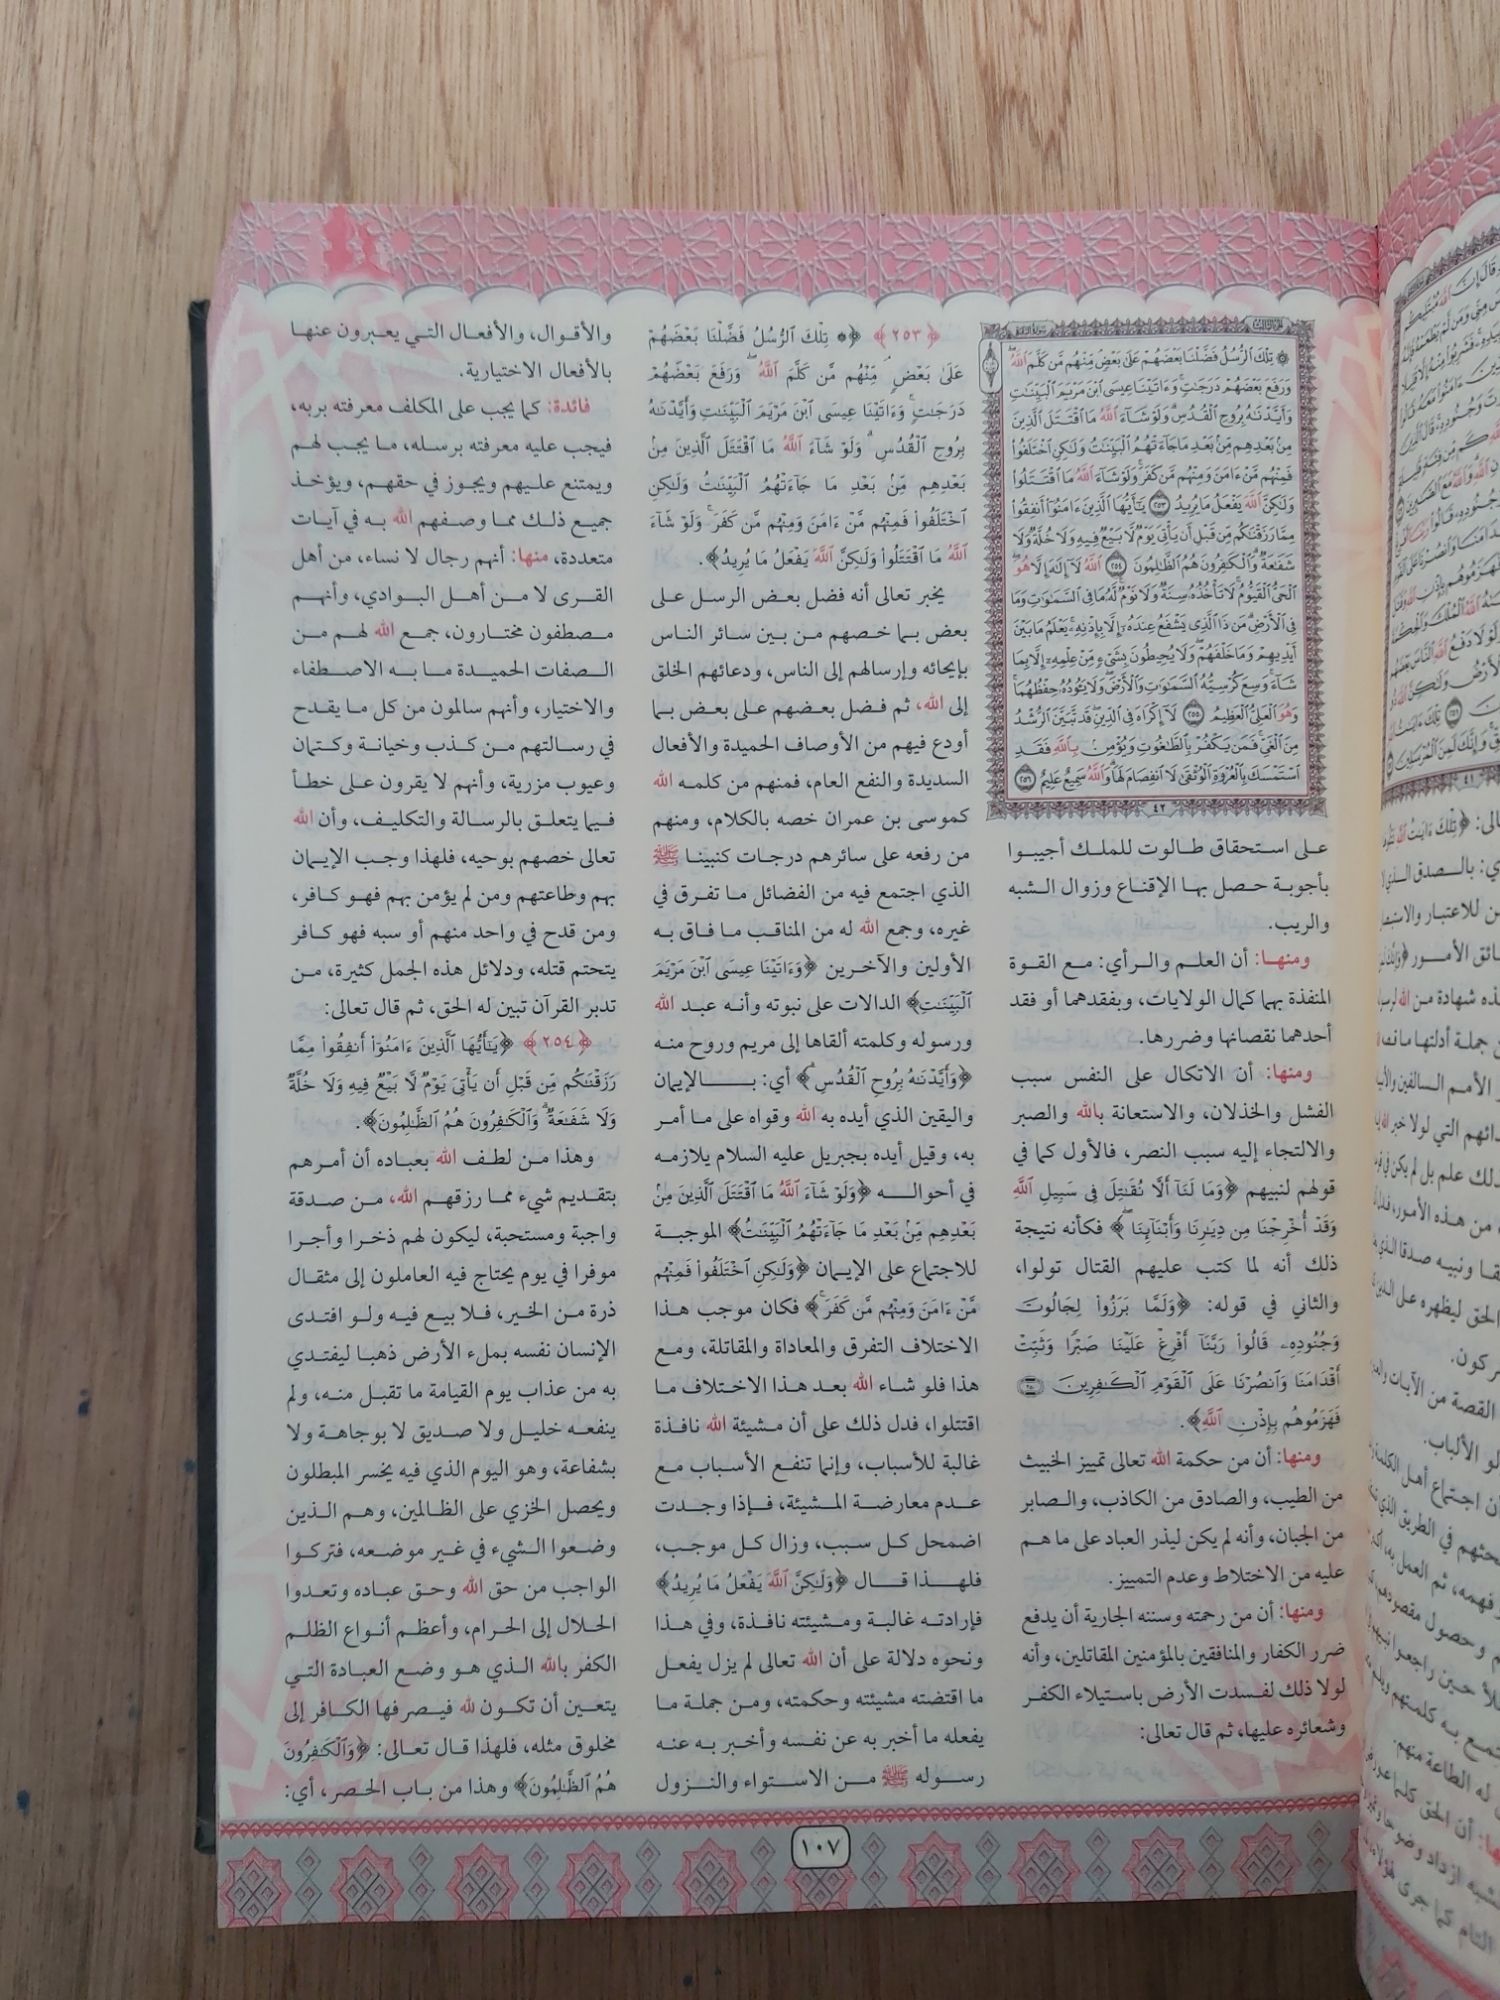 ۞ تِلْكَ ٱلرُّسُلُ فَضَّلْنَا بَعْضَهُمْ عَلَىٰ بَعْضٍ مِّنْهُم مَّن كَلَّمَ ٱللَّهُ
وَرَفَعَ بَعْضَهُمْ دَرَجَٰتٍ وَءَاتَيْنَا عِيسَى ٱبْنَ مَرْيَمَ ٱلْبَيِّنَٰتِ
وَأَيَّدْنَٰهُ بِرُوحِ ٱلْقُدُسِ وَلَوْ شَآءَ ٱللَّهُ مَا ٱقْتَتَلَ ٱلَّذِينَ
مِنۢ بَعْدِهِم مِّنۢ بَعْدِ مَا جَآءَتْهُمُ ٱلْبَيِّنَٰتُ وَلَٰكِنِ ٱخْتَلَفُوا۟
فَمِنْهُم مَّنْ ءَامَنَ وَمِنْهُم مَّن كَفَرَ وَلَوْ شَآءَ ٱللَّهُ مَا ٱقْتَتَلُوا۟
وَلَٰكِنَّ ٱللَّهَ يَفْعَلُ مَا يُرِيدُ ٢٥٣ يَٰٓأَيُّهَا ٱلَّذِينَ ءَامَنُوٓا۟ أَنفِقُوا۟
مِمَّا رَزَقْنَٰكُم مِّن قَبْلِ أَن يَأْتِىَ يَوْمٌ لَّا بَيْعٌ فِيهِ وَلَا خُلَّةٌ وَلَا
شَفَٰعَةٌ وَٱلْكَٰفِرُونَ هُمُ ٱلظَّٰلِمُونَ ٢٥٤ ٱللَّهُ لَآ إِلَٰهَ إِلَّا هُوَ
ٱلْحَىُّ ٱلْقَيُّومُ لَا تَأْخُذُهُۥ سِنَةٌ وَلَا نَوْمٌ لَّهُۥ مَا فِى ٱلسَّمَٰوَٰتِ وَمَا
فِى ٱلْأَرْضِ مَن ذَا ٱلَّذِى يَشْفَعُ عِندَهُۥٓ إِلَّا بِإِذْنِهِۦ يَعْلَمُ مَا بَيْنَ
أَيْدِيهِمْ وَمَا خَلْفَهُمْ وَلَا يُحِيطُونَ بِشَىْءٍ مِّنْ عِلْمِهِۦٓ إِلَّا بِمَا
شَآءَ وَسِعَ كُرْسِيُّهُ ٱلسَّمَٰوَٰتِ وَٱلْأَرْضَ وَلَا يَـُٔودُهُۥ حِفْظُهُمَا
وَهُوَ ٱلْعَلِىُّ ٱلْعَظِيمُ ٢٥٥ لَآ إِكْرَاهَ فِى ٱلدِّينِ قَد تَّبَيَّنَ ٱلرُّشْدُ
مِنَ ٱلْغَىِّ فَمَن يَكْفُرْ بِٱلطَّٰغُوتِ وَيُؤْمِنۢ بِٱللَّهِ فَقَدِ
ٱسْتَمْسَكَ بِٱلْعُرْوَةِ ٱلْوُثْقَىٰ لَا ٱنفِصَامَ لَهَا وَٱللَّهُ سَمِيعٌ عَلِيمٌ ٢٥٦
٤٢
على استحقاق طالوت للملك أجيبوا
بأجوبة حصل بها الإقناع وزوال الشبه
والريب.
ومنها: أن العلم والرأي: مع القوة
المنفذة بهما كمال الولايات، وبفقدهما أو فقد
أحدهما نقصانها وضررها.
ومنها: أن الاتكال على النفس سبب
الفشل والخذلان، والاستعانة بالله والصبر
والالتجاء إليه سبب النصر، فالأول كما في
قولهم لنبيهم ﴿وَمَا لَنَآ أَلَّا نُقَٰتِلَ فِى سَبِيلِ ٱللَّهِ
وَقَدْ أُخْرِجْنَا مِن دِيَٰرِنَا وَأَبْنَآئِنَا﴾ فكأنه نتيجة
ذلك أنه لما كتب عليهم القتال تولوا،
والثاني في قوله: ﴿وَلَمَّا بَرَزُوا۟ لِجَالُوتَ
وَجُنُودِهِۦ قَالُوا۟ رَبَّنَآ أَفْرِغْ عَلَيْنَا صَبْرًا وَثَبِّتْ
أَقْدَامَنَا وَٱنصُرْنَا عَلَى ٱلْقَوْمِ ٱلْكَٰفِرِينَ ٢٥٠
فَهَزَمُوهُم بِإِذْنِ ٱللَّهِ﴾.
ومنها: أن من حكمة الله تعالى تمييز الخبيث
من الطيب، والصادق من الكاذب، والصابر
من الجبان، وأنه لم يكن ليذر العباد على ما هم
عليه من الاختلاط وعدم التمييز.
ومنها: أن من رحمته وسننه الجارية أن يدفع
ضرر الكفار والمنافقين بالمؤمنين المقاتلين، وأنه
لولا ذلك لفسدت الأرض باستيلاء الكفر
وشعائره عليها، ثم قال تعالى:
﴿٢٥٣﴾ ﴿۞ تِلْكَ ٱلرُّسُلُ فَضَّلْنَا بَعْضَهُمْ
عَلَىٰ بَعْضٍ مِّنْهُم مَّن كَلَّمَ ٱللَّهُ وَرَفَعَ بَعْضَهُمْ
دَرَجَٰتٍ وَءَاتَيْنَا عِيسَى ٱبْنَ مَرْيَمَ ٱلْبَيِّنَٰتِ وَأَيَّدْنَٰهُ
بِرُوحِ ٱلْقُدُسِ وَلَوْ شَآءَ ٱللَّهُ مَا ٱقْتَتَلَ ٱلَّذِينَ مِنۢ
بَعْدِهِم مِّنۢ بَعْدِ مَا جَآءَتْهُمُ ٱلْبَيِّنَٰتُ وَلَٰكِنِ
ٱخْتَلَفُوا۟ فَمِنْهُم مَّنْ ءَامَنَ وَمِنْهُم مَّن كَفَرَ وَلَوْ شَآءَ
ٱللَّهُ مَا ٱقْتَتَلُوا۟ وَلَٰكِنَّ ٱللَّهَ يَفْعَلُ مَا يُرِيدُ﴾.
يخبر تعالى أنه فضل بعض الرسل على
بعض بما خصهم من بين سائر الناس
بإيحائه وإرسالهم إلى الناس، ودعائهم الخلق
إلى الله، ثم فضل بعضهم على بعض بما
أودع فيهم من الأوصاف الحميدة والأفعال
السديدة والنفع العام، فمنهم من كلمه الله
كموسى بن عمران خصه بالكلام، ومنهم
من رفعه على سائرهم درجات كنبينا ﷺ
الذي اجتمع فيه من الفضائل ما تفرق في
غيره، وجمع الله له من المناقب ما فاق به
الأولين والآخرين ﴿وَءَاتَيْنَا عِيسَى ٱبْنَ مَرْيَمَ
ٱلْبَيِّنَٰتِ﴾ الدالات على نبوته وأنه عبد الله
ورسوله وكلمته ألقاها إلى مريم وروح منه
﴿وَأَيَّدْنَٰهُ بِرُوحِ ٱلْقُدُسِ﴾ أي: بالإيمان
واليقين الذي أيده به الله وقواه على ما أمر
به، وقيل أيده بجبريل عليه السلام يلازمه
في أحواله ﴿وَلَوْ شَآءَ ٱللَّهُ مَا ٱقْتَتَلَ ٱلَّذِينَ مِنۢ
بَعْدِهِم مِّنۢ بَعْدِ مَا جَآءَتْهُمُ ٱلْبَيِّنَٰتُ﴾ الموجبة
للاجتماع على الإيمان ﴿وَلَٰكِنِ ٱخْتَلَفُوا۟ فَمِنْهُم
مَّنْ ءَامَنَ وَمِنْهُم مَّن كَفَرَ﴾ فكان موجب هذا
الاختلاف التفرق والمعاداة والمقاتلة، ومع
هذا فلو شاء الله بعد هذا الاختلاف ما
اقتتلوا، فدل ذلك على أن مشيئة الله نافذة
غالبة للأسباب، وإنما تنفع الأسباب مع
عدم معارضة المشيئة، فإذا وجدت
اضمحل كل سبب، وزال كل موجب،
فلهذا قال ﴿وَلَٰكِنَّ ٱللَّهَ يَفْعَلُ مَا يُرِيدُ﴾
فإرادته غالبة ومشيئته نافذة، وفي هذا
ونحوه دلالة على أن الله تعالى لم يزل يفعل
ما اقتضته مشيئته وحكمته، ومن جملة ما
يفعله ما أخبر به عن نفسه وأخبر به عنه
رسوله ﷺ من الاستواء والنزول
والأقوال، والأفعال التي يعبرون عنها
بالأفعال الاختيارية.
فائدة: كما يجب على المكلف معرفته بربه،
فيجب عليه معرفته برسله، ما يجب لهم
ويمتنع عليهم ويجوز في حقهم، ويؤخذ
جميع ذلك مما وصفهم الله به في آيات
متعددة، منها: أنهم رجال لا نساء، من أهل
القرى لا من أهل البوادي، وأنهم
مصطفون مختارون، جمع الله لهم من
الصفات الحميدة ما به الاصطفاء
والاختيار، وأنهم سالمون من كل ما يقدح
في رسالتهم من كذب وخيانة وكتمان
وعيوب مزرية، وأنهم لا يقرون على خطأ
فيما يتعلق بالرسالة والتكليف، وأن الله
تعالى خصهم بوحيه، فلهذا وجب الإيمان
بهم وطاعتهم ومن لم يؤمن بهم فهو كافر،
ومن قدح في واحد منهم أو سبه فهو كافر
يتحتم قتله، ودلائل هذه الجمل كثيرة، من
تدبر القرآن تبين له الحق، ثم قال تعالى:
﴿٢٥٤﴾ ﴿يَٰٓأَيُّهَا ٱلَّذِينَ ءَامَنُوٓا۟ أَنفِقُوا۟ مِمَّا
رَزَقْنَٰكُم مِّن قَبْلِ أَن يَأْتِىَ يَوْمٌ لَّا بَيْعٌ فِيهِ وَلَا خُلَّةٌ
وَلَا شَفَٰعَةٌ وَٱلْكَٰفِرُونَ هُمُ ٱلظَّٰلِمُونَ﴾.
وهذا من لطف الله بعباده أن أمرهم
بتقديم شيء مما رزقهم الله، من صدقة
واجبة ومستحبة، ليكون لهم ذخرا وأجرا
موفرا في يوم يحتاج فيه العاملون إلى مثقال
ذرة من الخير، فلا بيع فيه ولو افتدى
الإنسان نفسه بملء الأرض ذهبا ليفتدي
به من عذاب يوم القيامة ما تقبل منه، ولم
ينفعه خليل ولا صديق لا بوجاهة ولا
بشفاعة، وهو اليوم الذي فيه يخسر المبطلون
ويحصل الخزي على الظالمين، وهم الذين
وضعوا الشيء في غير موضعه، فتركوا
الواجب من حق الله وحق عباده وتعدوا
الحلال إلى الحرام، وأعظم أنواع الظلم
الكفر بالله الذي هو وضع العبادة التي
يتعين أن تكون لله فيصرفها الكافر إلى
مخلوق مثله، فلهذا قال تعالى: ﴿وَٱلْكَٰفِرُونَ
هُمُ ٱلظَّٰلِمُونَ﴾ وهذا من باب الحصر، أي:
١٠٧